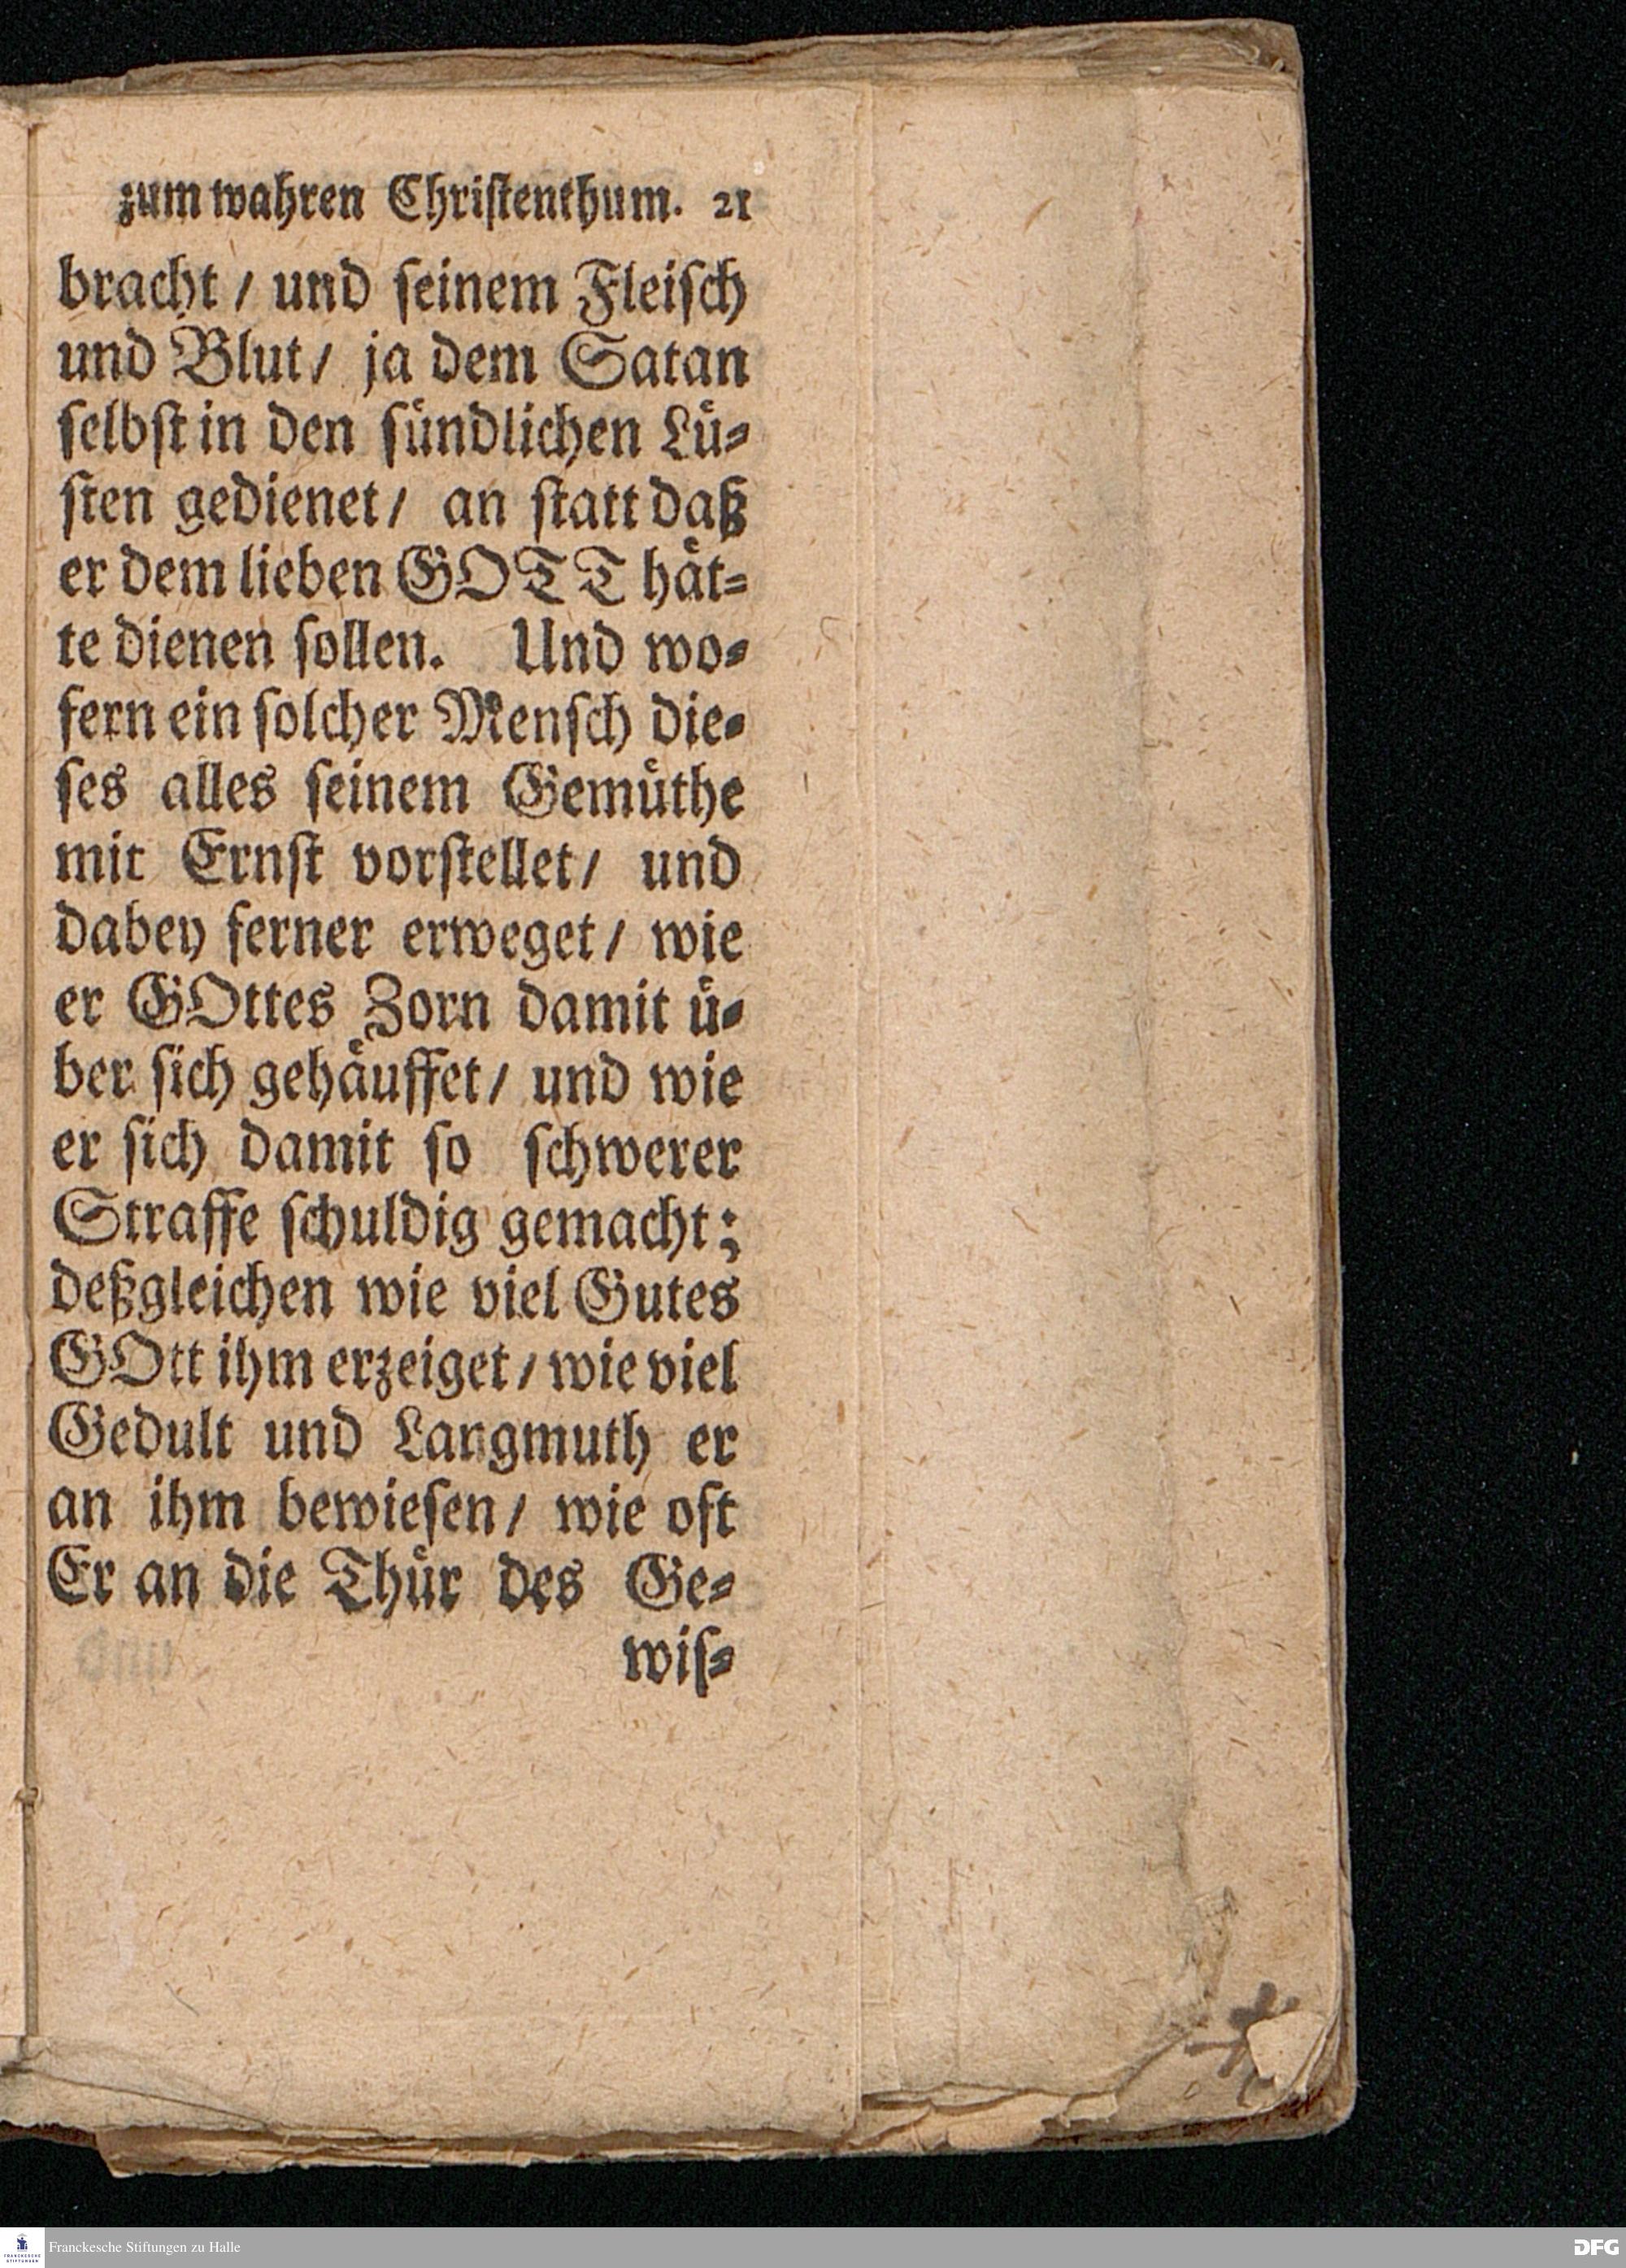 zum wahren Christenthum. 21
bracht / und seinem Fleisch
und Blut / ja dem Satan
selbst in den sündlichen Lü-
sten gedienet / an statt daß
er dem lieben GOTT hät-
te dienen sollen. Und wo-
fern ein solcher Mensch die-
ses alles seinem Gemüthe
mit Ernst vorstellet / und
dabey ferner erweget / wie
er GOttes Zorn damit ü-
ber sich gehäuffet / und wie
er sich damit so schwerer
Straffe schuldig gemacht;
deßgleichen wie viel Gutes
GOtt ihm erzeiget / wie viel
Gedult und Langmuth er
an ihm bewiesen / wie oft
Er an die Thür des Ge-
wis-
Franckesche Stiftungen zu Halle
DFG